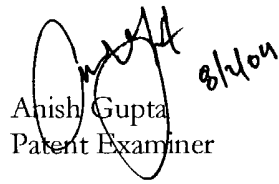 8/2/04
Anish Gupta
Patent Examiner